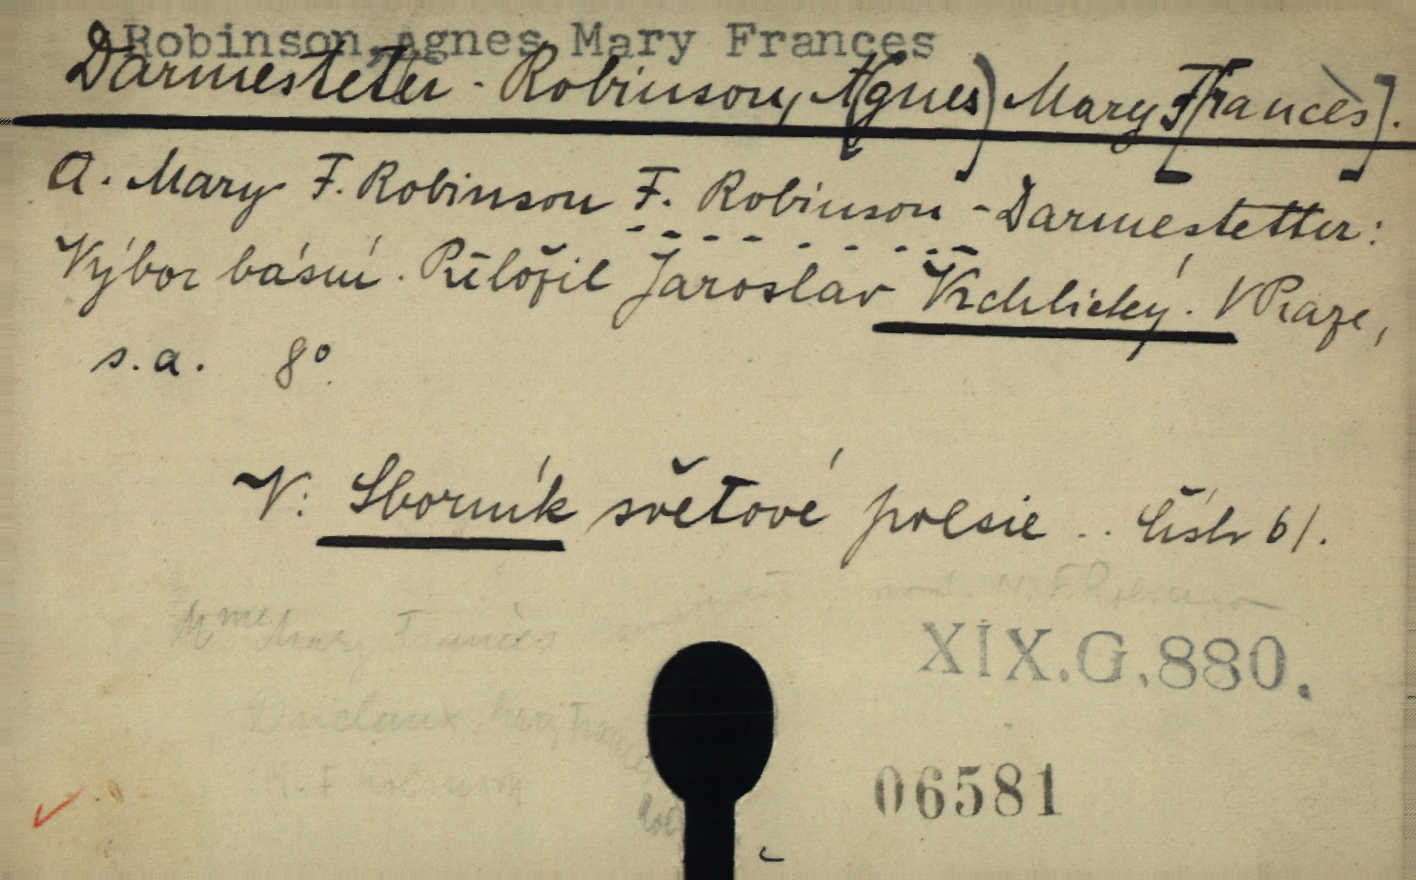 Robinson, Agnes Mary Frances
Darmesteter - Robinson, A(gnes) Mary F[rancès].
A. Mary F. Robinson F. Robinson - Darmestetter:
Výbor básní. Přeložil Jaroslav Vrchlický. V Praze,
s. a. 8°.
V: Sborník světové poesie .. číslo 61.
Mme Mary Francès
XIX.G.880.
Duclaux Mary Frances
M. F. Robinson
06581